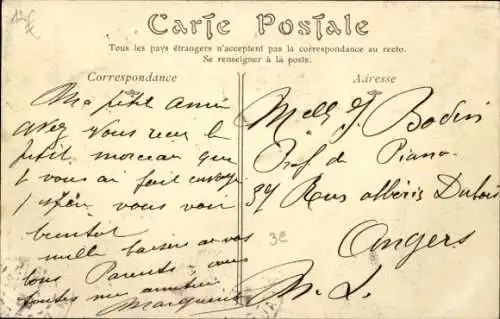 Carte Postale
Tous les pays étrangers n'acceptent pas la correspondance au recto.
Se renseigner à la poste.
Correspondance
Ma petit amie
avez vous reçu le
petit morceau que
vous ai fait envoyé
j'espère vous voir
bientot
mille baisers a vos
bons Parents a vous
toutes mes amitiés
Marguerite
Adresse
Melle J. Bodin
Prof de Piano
37 Rue
Angers
M. L.
3€